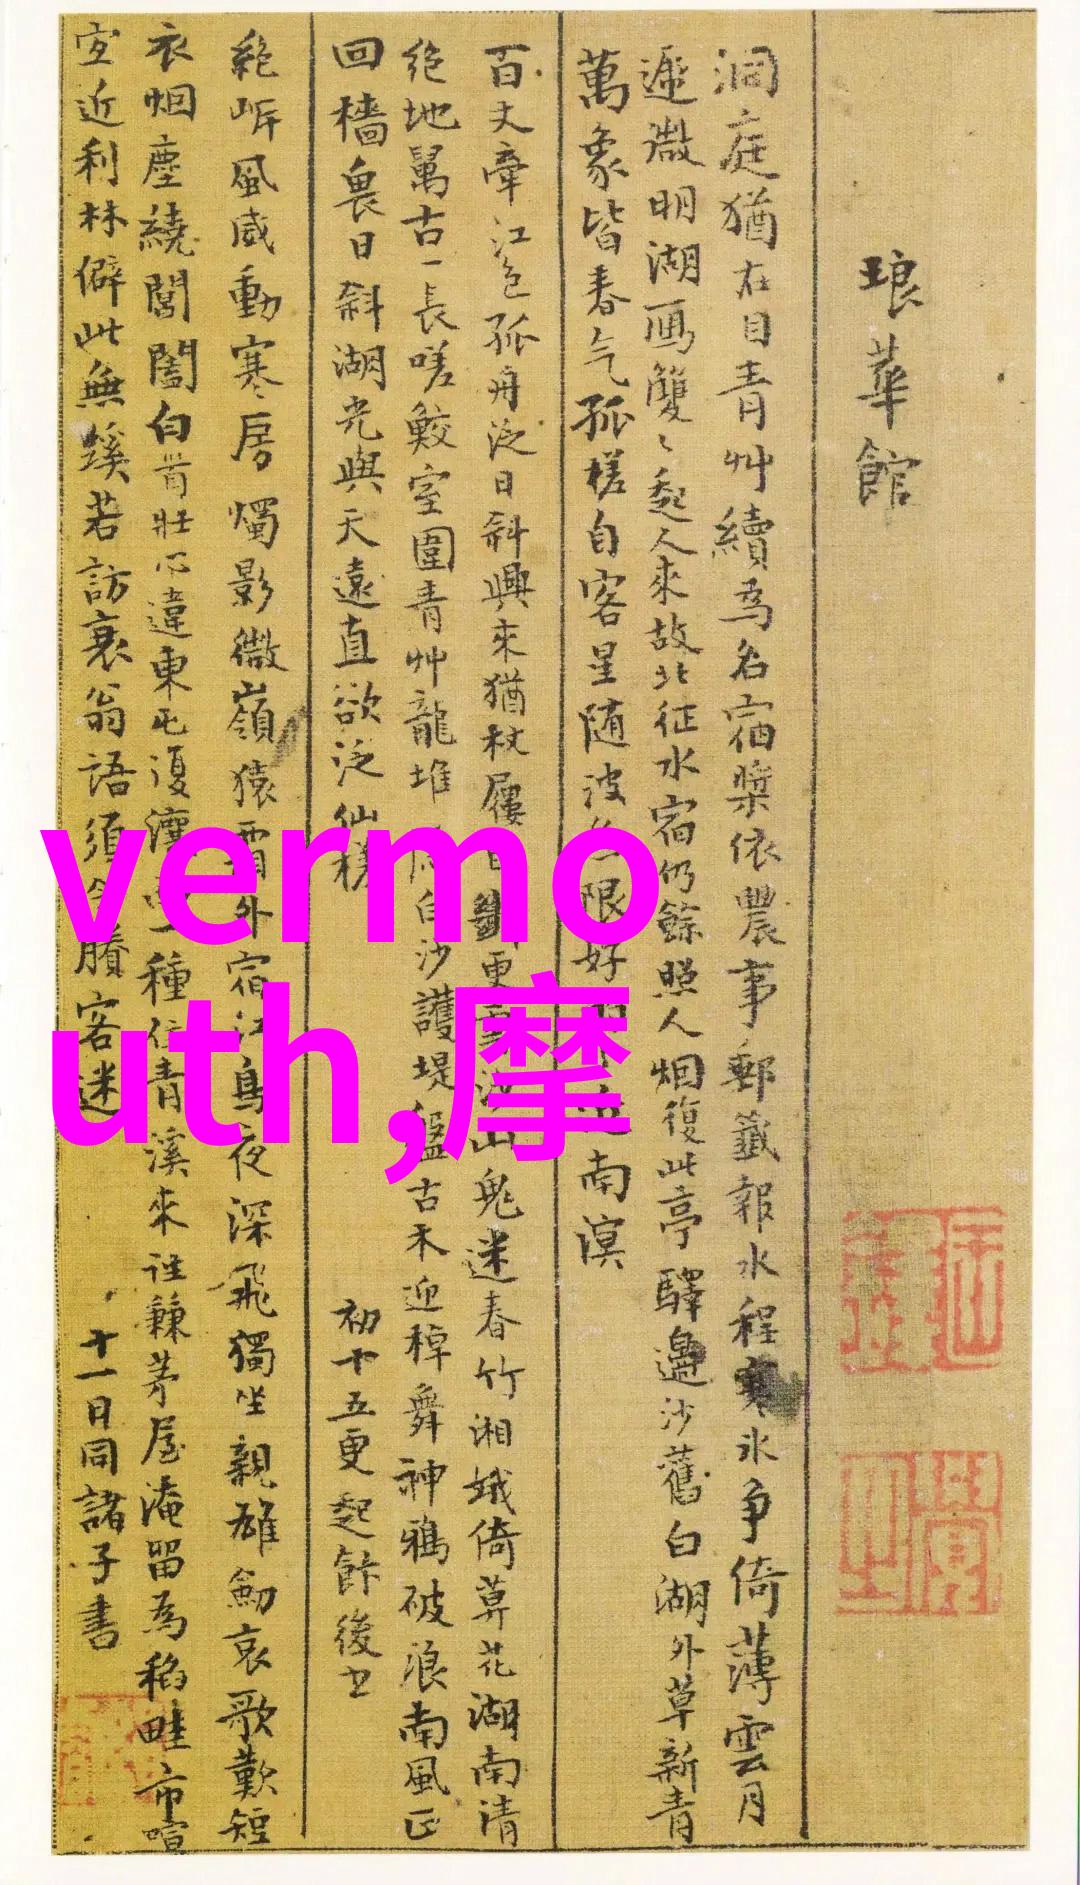 琅華館
洞庭猶在目青艸續為名宿槳依農事郵籤報水程寒氷争倚薄雲月
遞微明湖雁雙〻起人來故北征水宿仍餘照人烟復此亭驛邊沙舊白湖外草新青
萬象皆春气孤槎自客星随波無限好 南溟
百丈牽江色孤舟泛日斜興來猶杖屨 更雲沙山鬼迷春竹湘娥倚莫花湖南清
绝地萬古一長嗟鮫室圍青艸龍堆 白沙護堤盤古木迎棹舞神鴉破浪南風正
回檣畏日斜湖光與天遠直欲泛仙槎
初十五更起飰後书
絶岸風威動寒房燭影微嶺猿霜外宿江鳥夜深飛獨坐親雄劍哀歌歎短
衣烟塵繞閶闔白首壯心違東屯復瀼 一種住青溪來往蒹茅屋淹留為稻畦市喧
宜近利林僻此無蹊若訪衰翁語須令賸客迷
十一日同諸子書
vermo
uth,摩